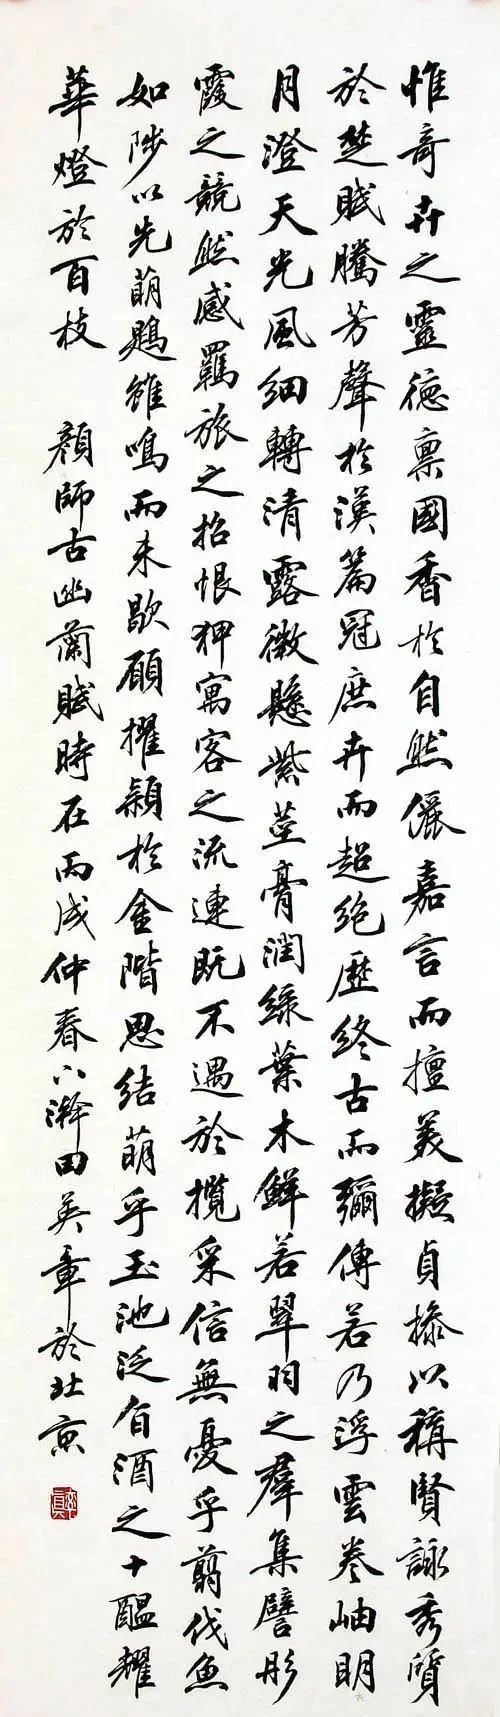 惟奇卉之靈德禀國香於自然儷嘉言而擅美擬貞操以稱賢詠秀質
於楚賦騰芳聲於漢篇冠庶卉而超絶歷終古而彌傳若乃浮雲卷岫明
月澄天光風細轉清露微懸紫莖膏潤綠葉木鮮若翠羽之羣集譬彤
霞之競然感羈旅之招恨狎寓客之流連既不遇於攬采信無憂乎剪伐魚
如陟以先萌鶗雖鳴而未歇願擢穎於金階思結萌乎玉池泛旨酒之十醞耀
華燈於百枝 顏師古幽蘭賦時在丙戌仲春下澣田英章於北京